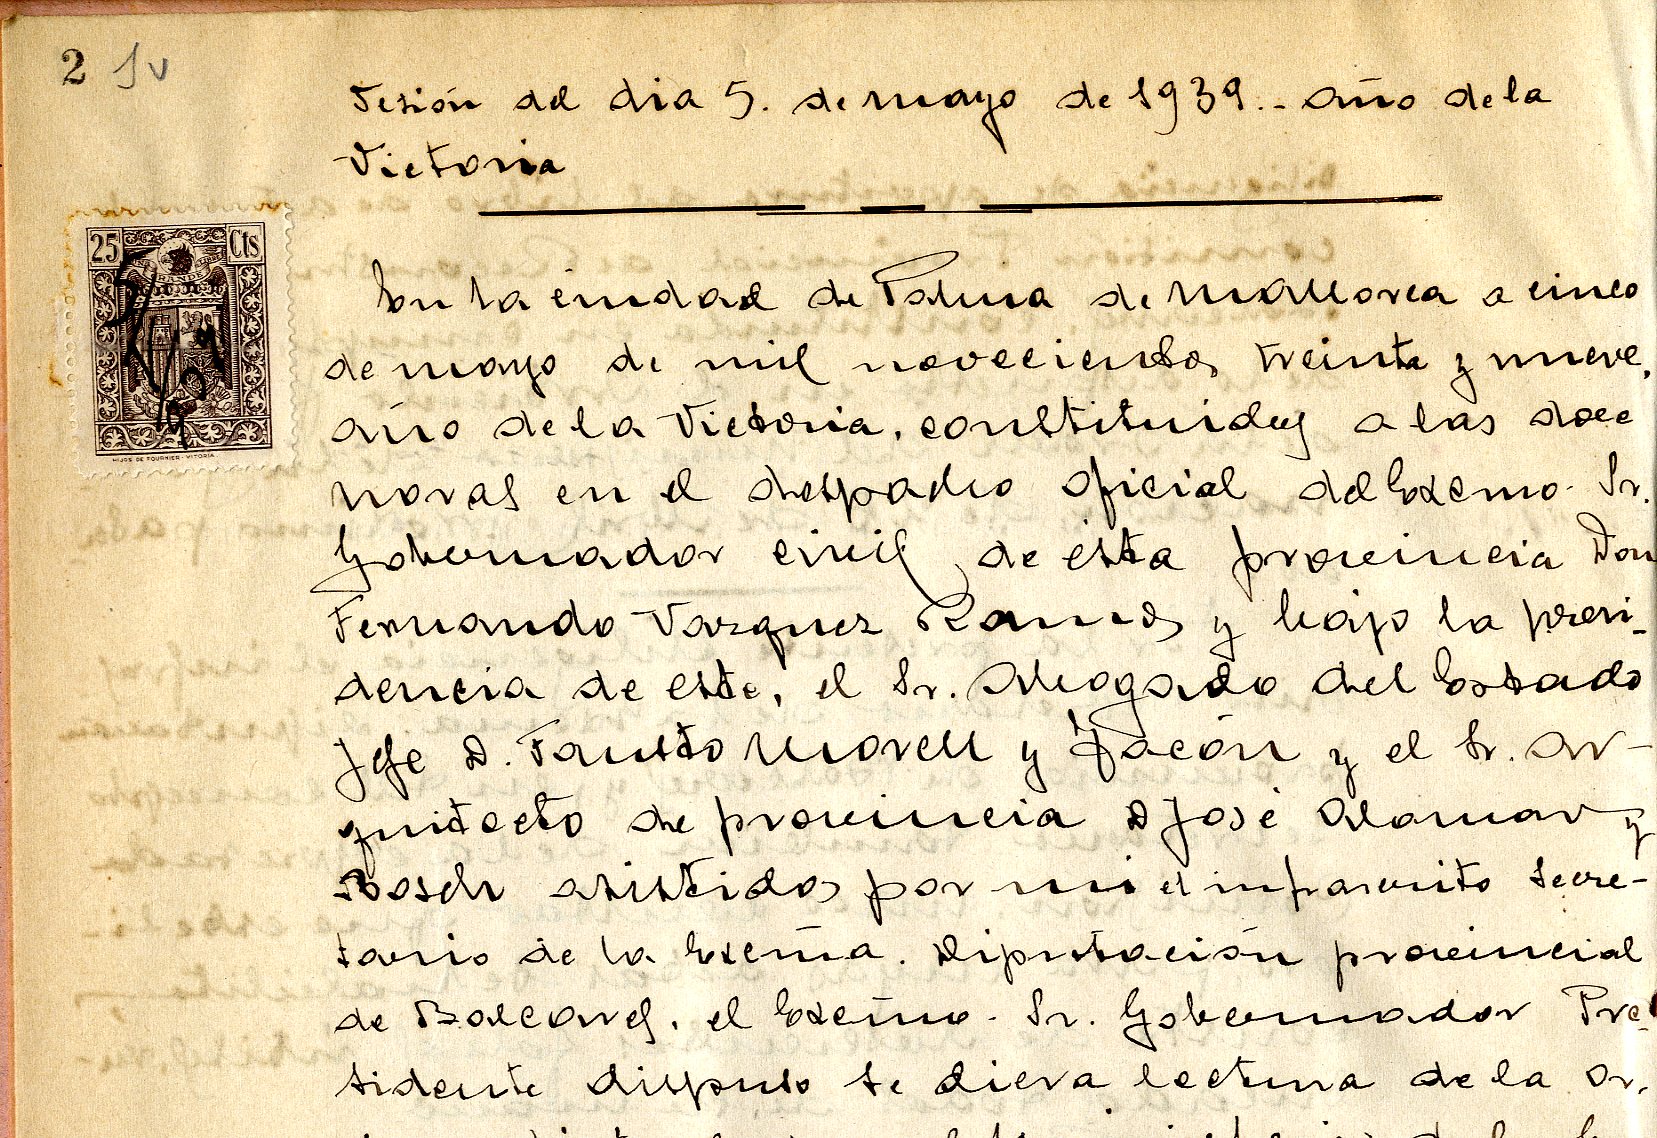 2 1v
Sesión del dia 5. de mayo de 1939.- Año de la
Victoria
25 Cts
GRANDE
HIJOS DE FOURNIER - VITORIA
En la ciudad de Palma de Mallorca a cinco
de mayo de mil novecientos treinta y nueve,
año de la Victoria, constituidos a las doce
horas en el despacho oficial del Excmo. Sr.
Gobernador civil de esta provincia Don
Fernando Vazquez Ramos y bajo la presi-
dencia de este, el Sr. Abogado del Estado
Jefe D. Fausto Morell y Tacón y el Sr. Ar-
quitecto de provincia D José Alomar y
Bosch asistidos por mi el infrascrito Secre-
tario de la Excma. Diputación provincial
de Baleares, el Excmo. Sr. Gobernador Pre-
sidente dispuso se diera lectura de la or-